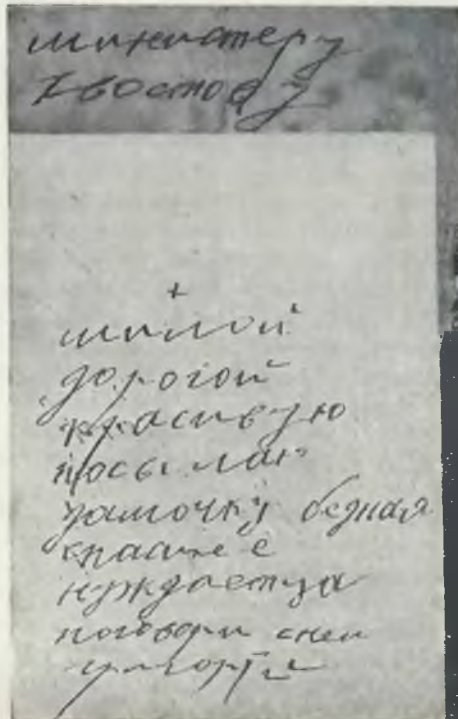 министеру
хвостову
+
милой
дорогой
красивую
посылаю
дамочку бедная
спаси её
нуждаетца
поговори сней
григорӀи